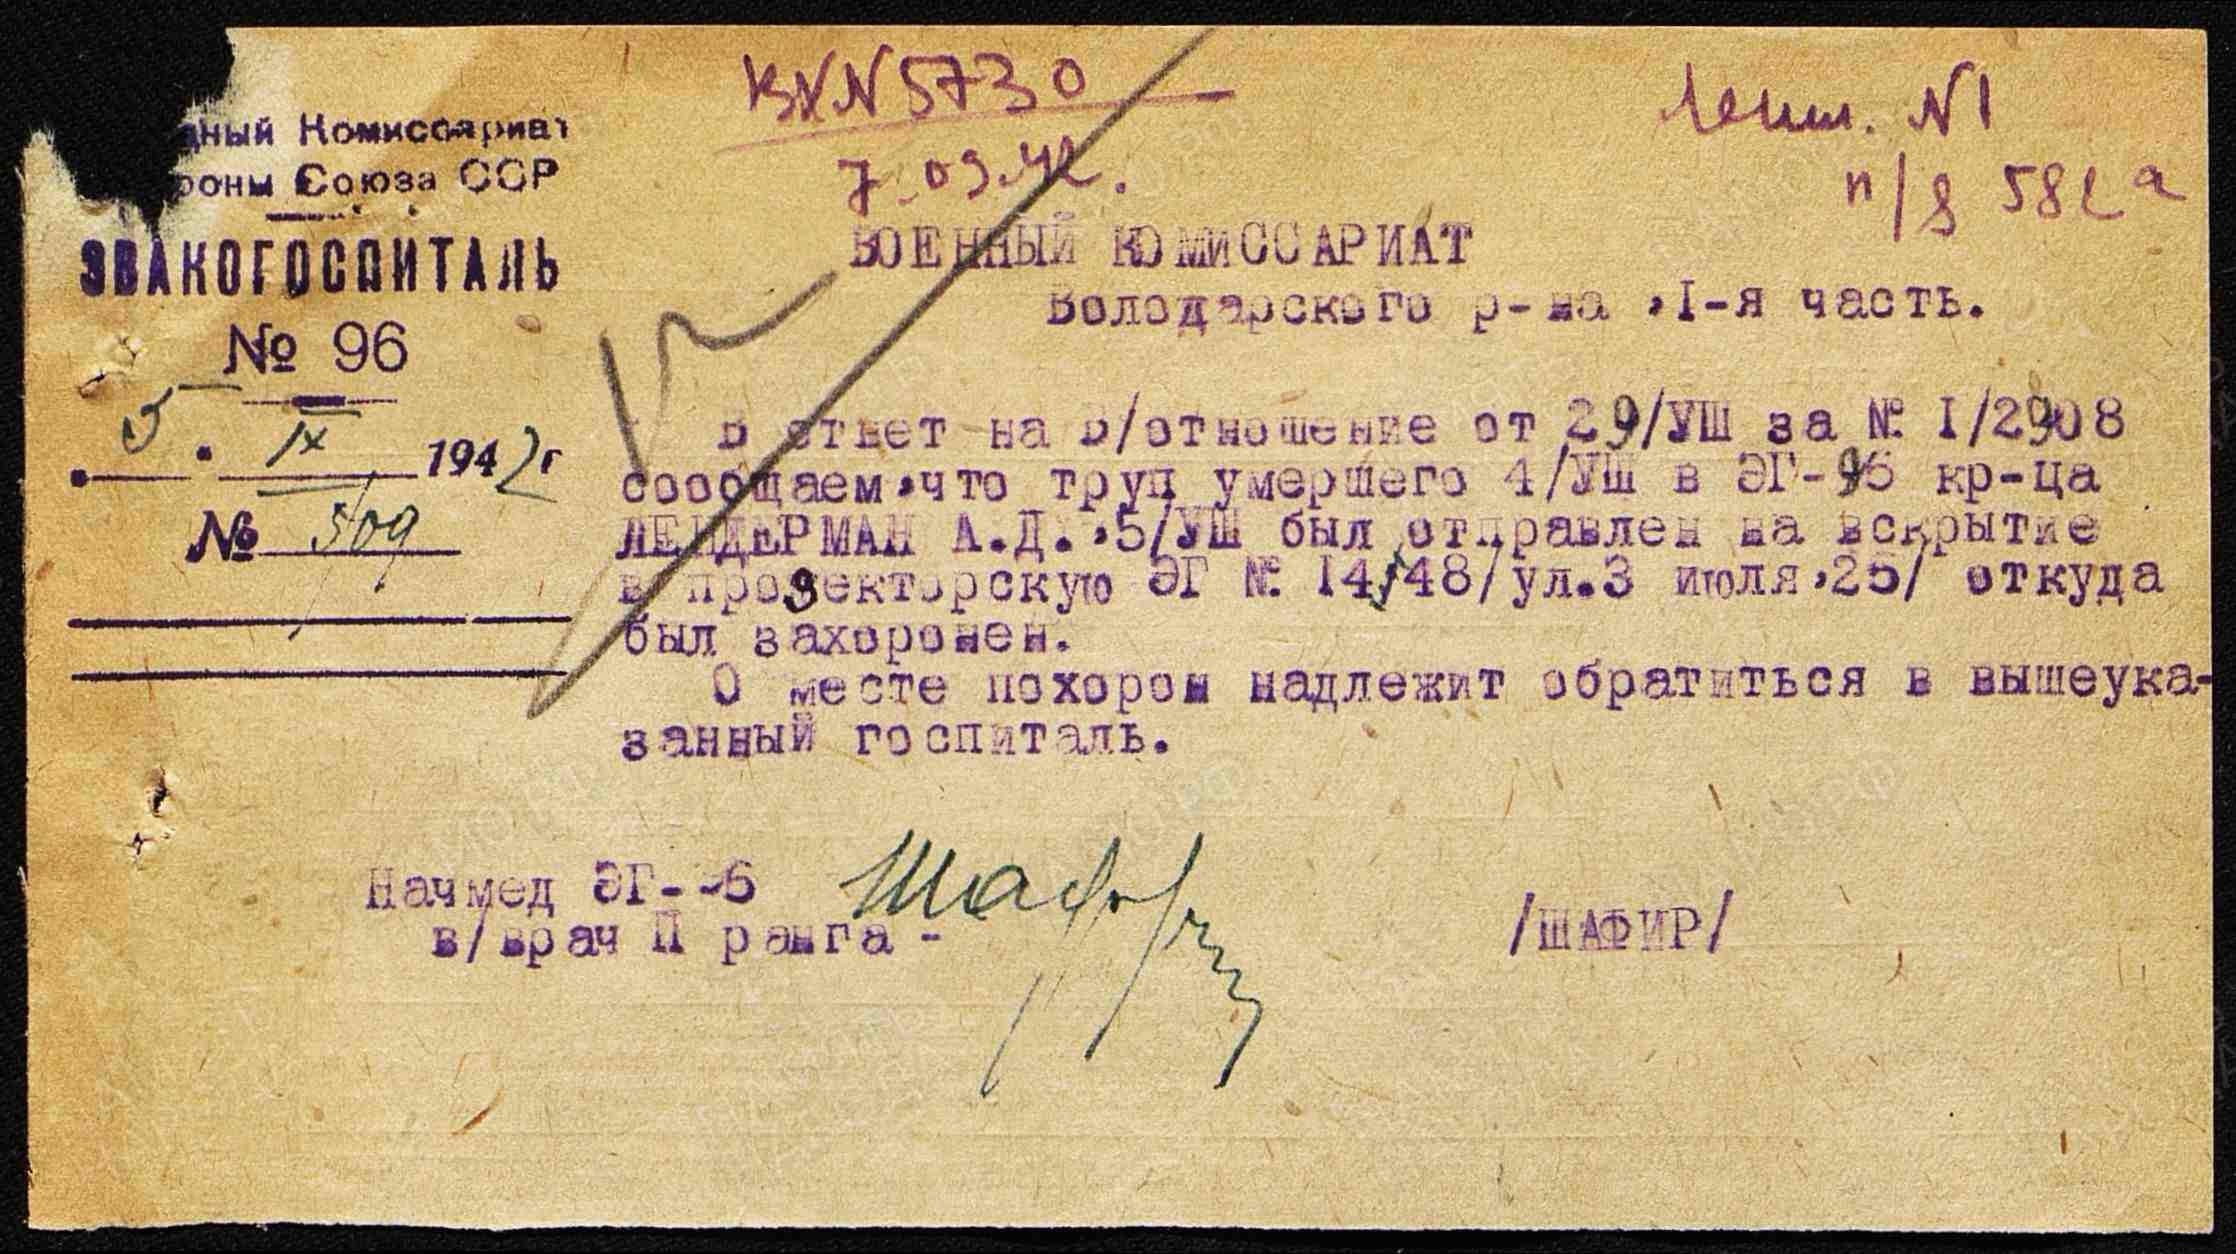 ВХ N 5730
7.09.42.
Ленин. N1
п/я 582а
дный Комиссариат
роны Союза ССР
ЭВАКОГОСПИТАЛЬ
№ 96
5. IX 1942 г
№ 509
ВОЕННЫЙ КОМИССАРИАТ
Володарского р-на ,I-я часть.
В ответ на В/отношение от 29/УШ за № I/2908
сообщаем,что труп умершего 4/УШ в ЭГ-96 кр-ца
ЛЕЙДЕРМАН А.Д.,5/УШ был отправлен на вскрытие
в прозекторскую ЭГ № I4/48/ул.3 июля,25/ откуда
был захоронен.
О месте похорон надлежит обратиться в вышеука-
занный госпиталь.
Начмед ЭГ-96
в/врач П ранга -
Шафир
/ШАФИР/